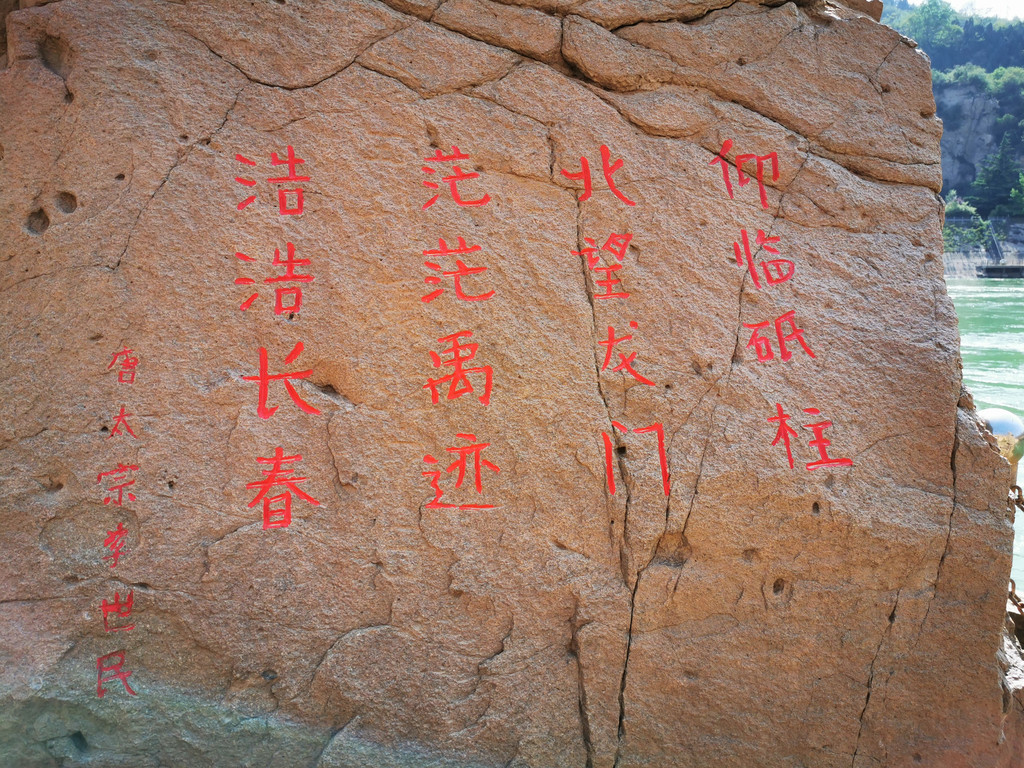 仰临砥柱
北望龙门
茫茫禹迹
浩浩长春
唐太宗李世民